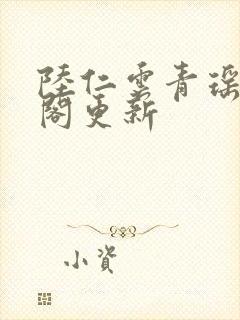 陸仁雲青瑶
閣更新
小資